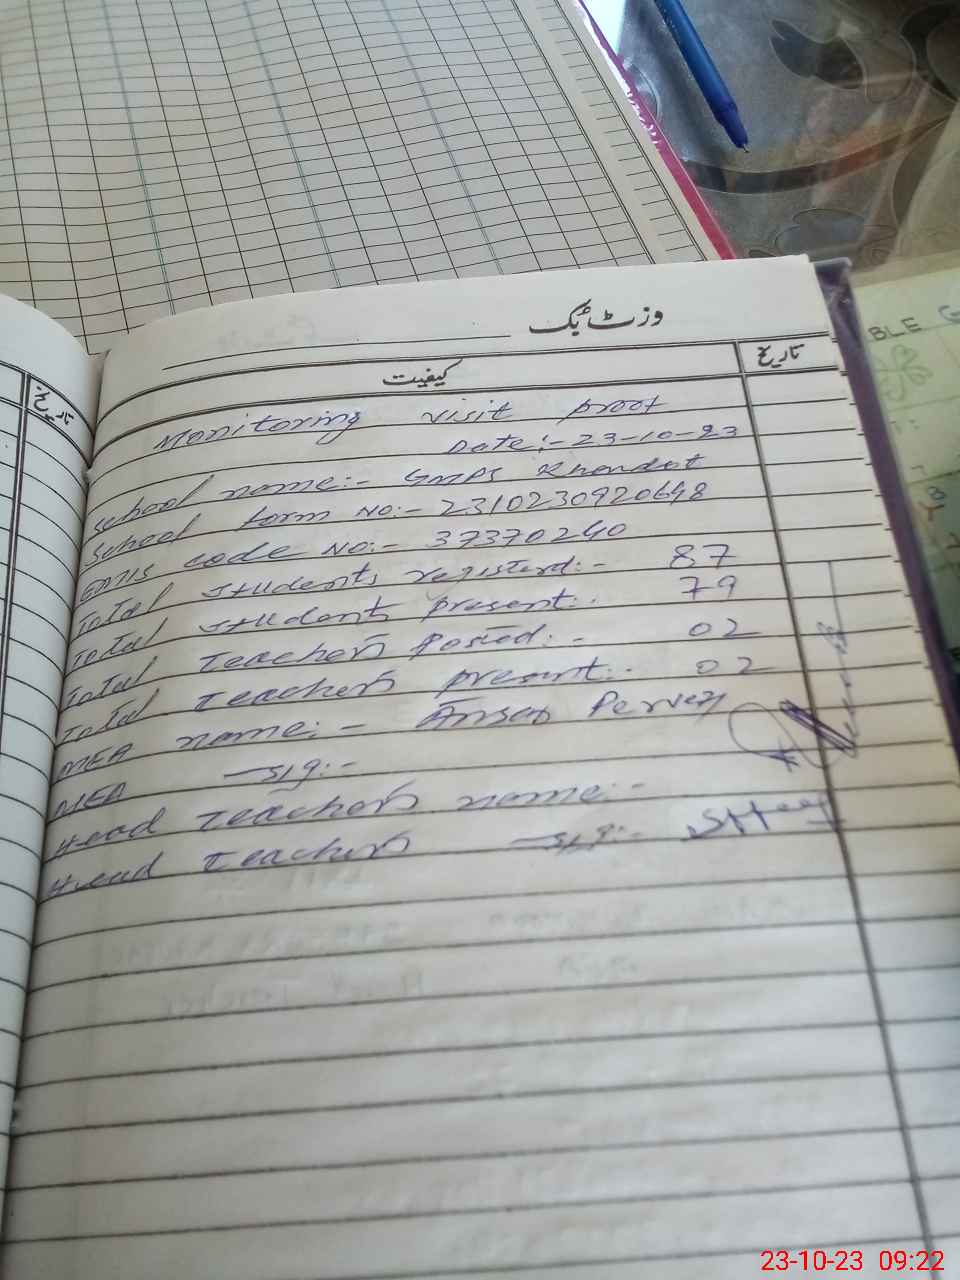 وزٹ بک
تاریخ
کیفیت
تاریخ
Monitoring visit proof
Date:- 23-10-23
School name:- GMPS Khandot
School form NO:- 2310230920648
EMIS code NO:- 37370240
Total students registerd:- 87
Total students present:- 79
Total Teachers Posted:- 02
Total Teachers present:- 02
MEA name:- Ansar Pervez
MEA sig:-
Head Teachers name:-
Head Teachers sig:-
BLE G
23-10-23 09:22